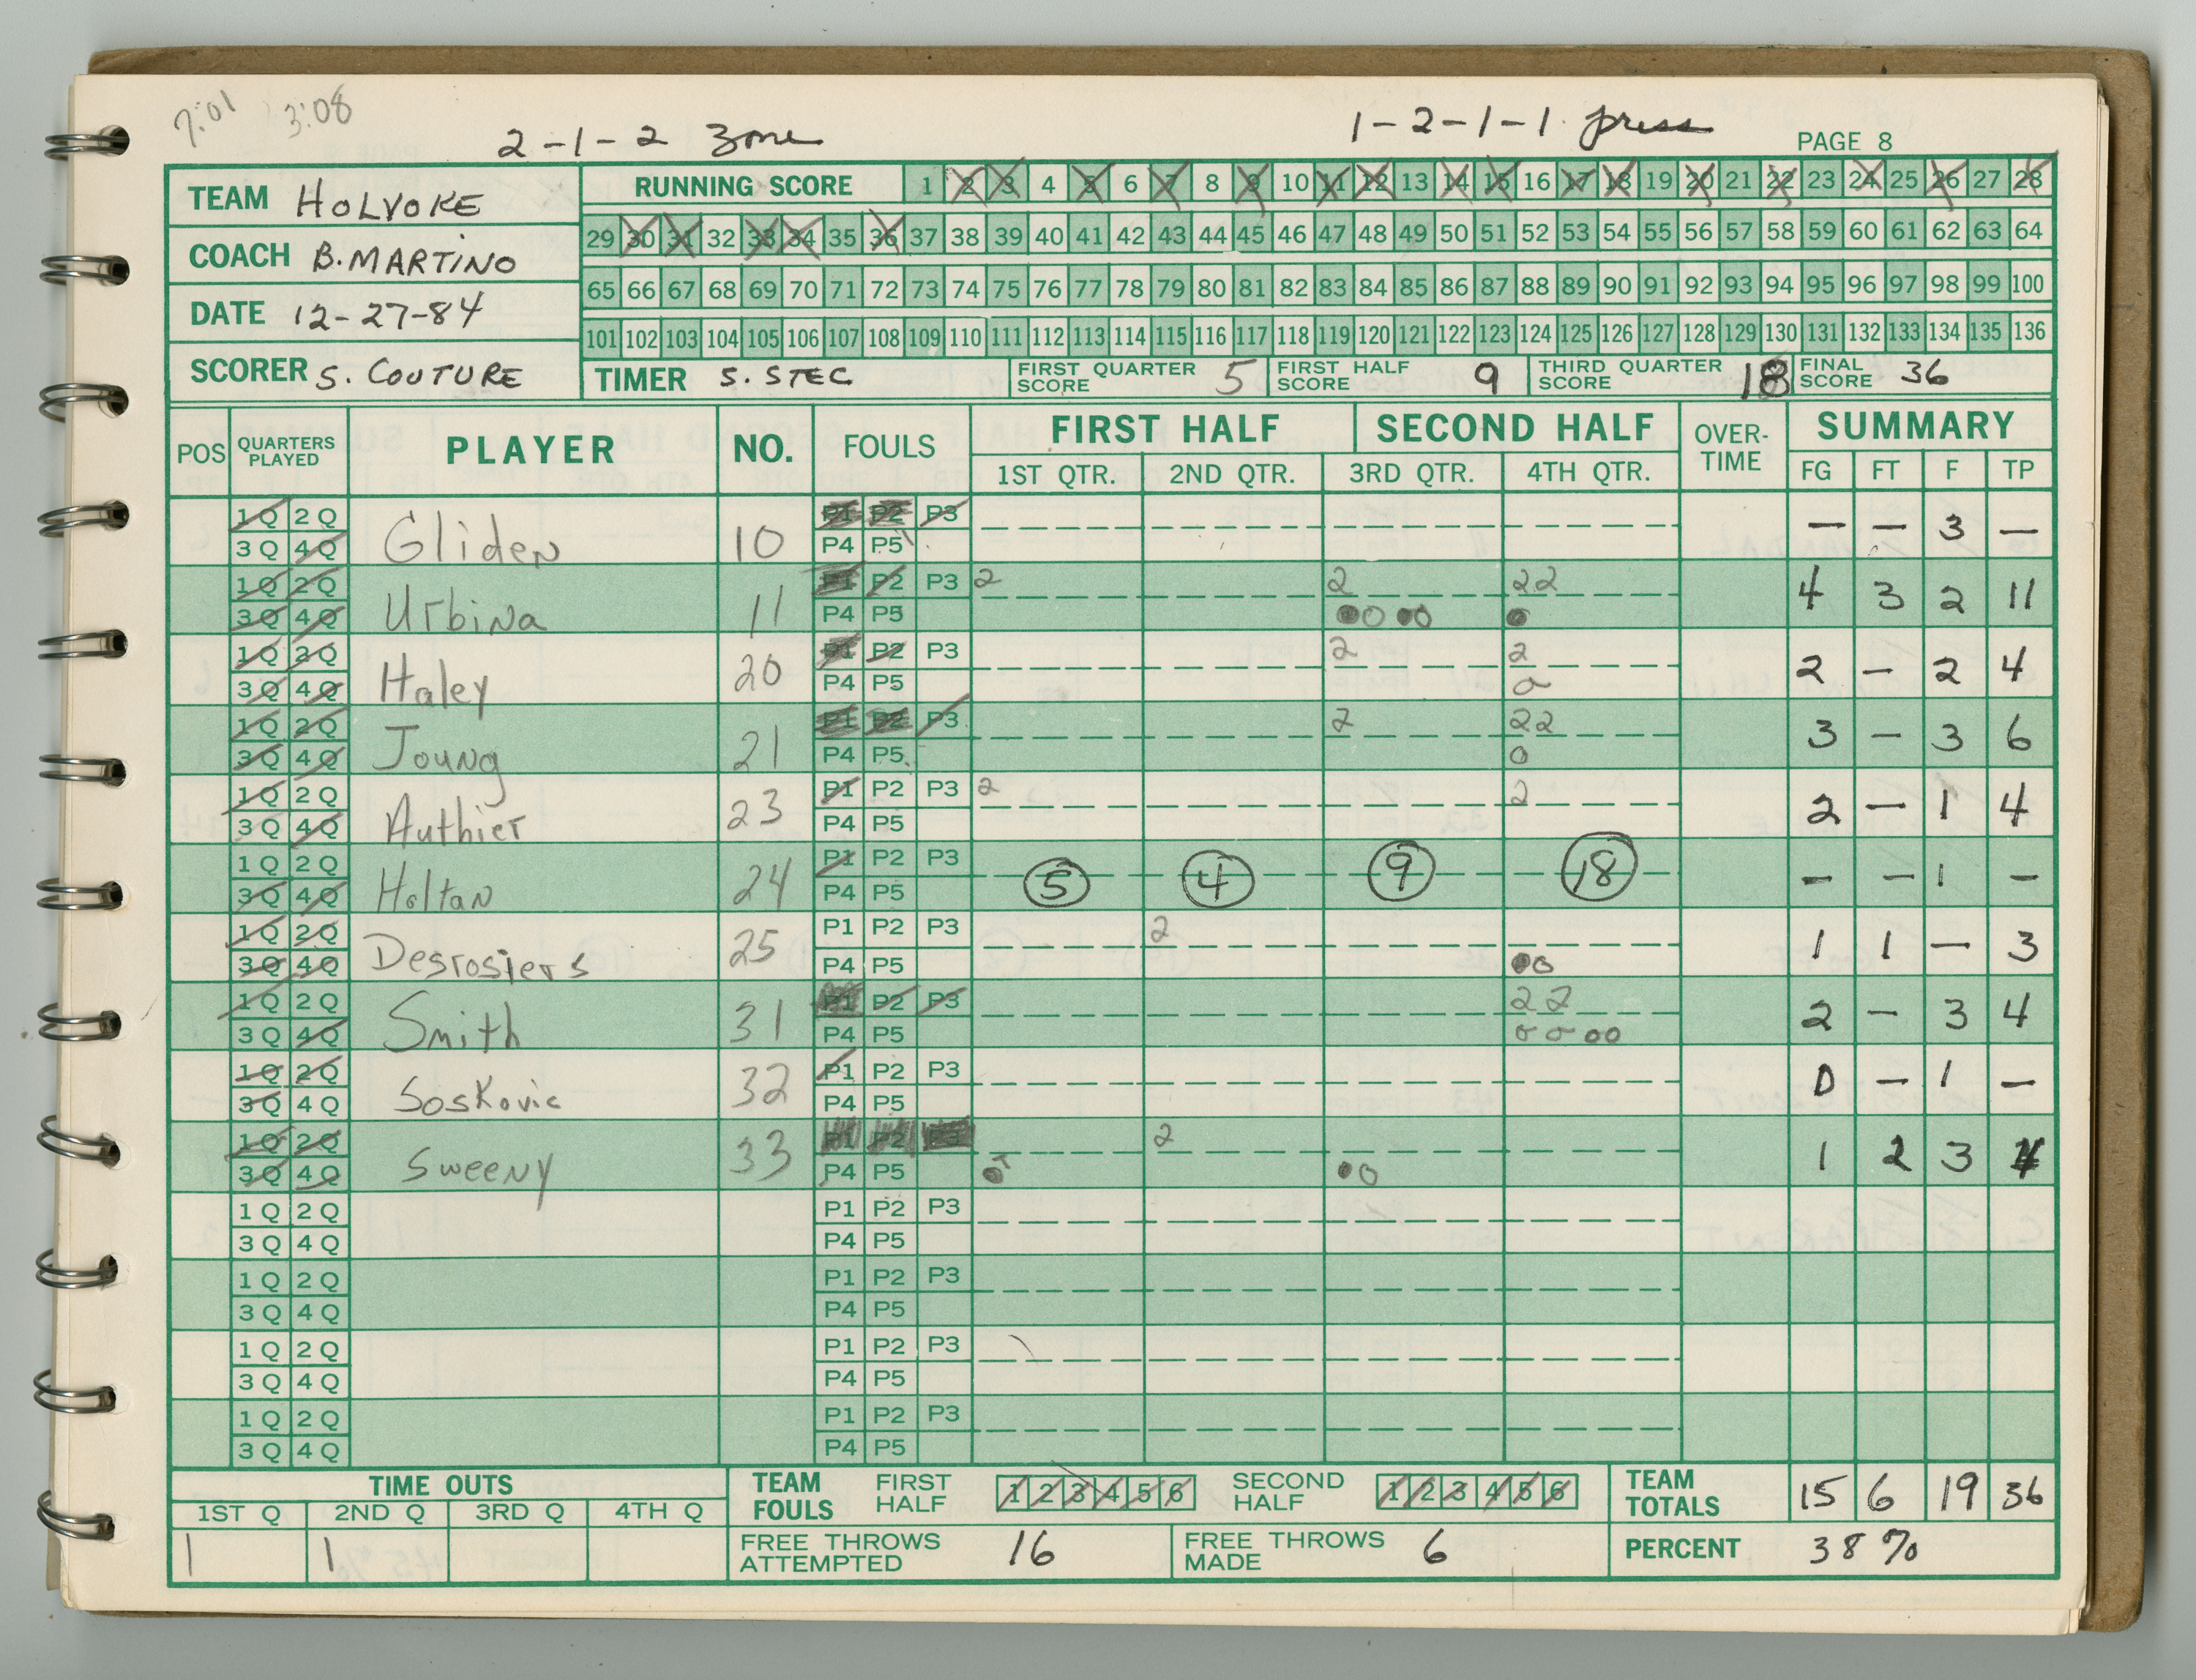 7:01 3:08
2-1-2 Zone 1-2-1-1 press PAGE 8
TEAM HOLYOKE
RUNNING SCORE 1 2 3 4 5 6 7 8 9 10 11 12 13 14 15 16 17 18 19 20 21 22 23 24 25 26 27 28
29 30 31 32 33 34 35 36 37 38 39 40 41 42 43 44 45 46 47 48 49 50 51 52 53 54 55 56 57 58 59 60 61 62 63 64
COACH B. MARTINO
65 66 67 68 69 70 71 72 73 74 75 76 77 78 79 80 81 82 83 84 85 86 87 88 89 90 91 92 93 94 95 96 97 98 99 100
DATE 12-27-84
101 102 103 104 105 106 107 108 109 110 111 112 113 114 115 116 117 118 119 120 121 122 123 124 125 126 127 128 129 130 131 132 133 134 135 136
SCORER S. COUTURE TIMER S. STEC FIRST QUARTER SCORE 5 FIRST HALF SCORE 9 THIRD QUARTER SCORE 18 FINAL SCORE 36
POS QUARTERS PLAYED PLAYER NO. FOULS FIRST HALF SECOND HALF OVER-TIME SUMMARY
1ST QTR. 2ND QTR. 3RD QTR. 4TH QTR. FG FT F TP
1Q 2Q P1 P2 P3
3Q 4Q Gliden 10 P4 P5 — — 3 —
1Q 2Q P1 P2 P3 2 2 22
3Q 4Q Urbina 11 P4 P5 4 3 2 11
1Q 2Q P1 P2 P3 2 2
3Q 4Q Haley 20 P4 P5 2 — 2 4
1Q 2Q P1 P2 P3 2 22
3Q 4Q Joung 21 P4 P5 0 3 — 3 6
1Q 2Q P1 P2 P3 2 2
3Q 4Q Authier 23 P4 P5 2 — 1 4
1Q 2Q P1 P2 P3 5 4 9 18
3Q 4Q Holtan 24 P4 P5 — — 1 —
1Q 2Q P1 P2 P3 2
3Q 4Q Desrosiers 25 P4 P5 1 1 — 3
1Q 2Q P1 P2 P3 22
3Q 4Q Smith 31 P4 P5 2 — 3 4
1Q 2Q P1 P2 P3
3Q 4Q Soskovic 32 P4 P5 0 — 1 —
1Q 2Q P1 P2 P3 2
3Q 4Q Sweeny 33 P4 P5 1 2 3 4
1Q 2Q P1 P2 P3
3Q 4Q P4 P5
1Q 2Q P1 P2 P3
3Q 4Q P4 P5
1Q 2Q P1 P2 P3
3Q 4Q P4 P5
1Q 2Q P1 P2 P3
3Q 4Q P4 P5
TIME OUTS TEAM FOULS FIRST HALF 1 2 3 4 5 6 SECOND HALF 1 2 3 4 5 6 TEAM TOTALS 15 6 19 36
1ST Q 2ND Q 3RD Q 4TH Q
1 1 FREE THROWS ATTEMPTED 16 FREE THROWS MADE 6 PERCENT 38%